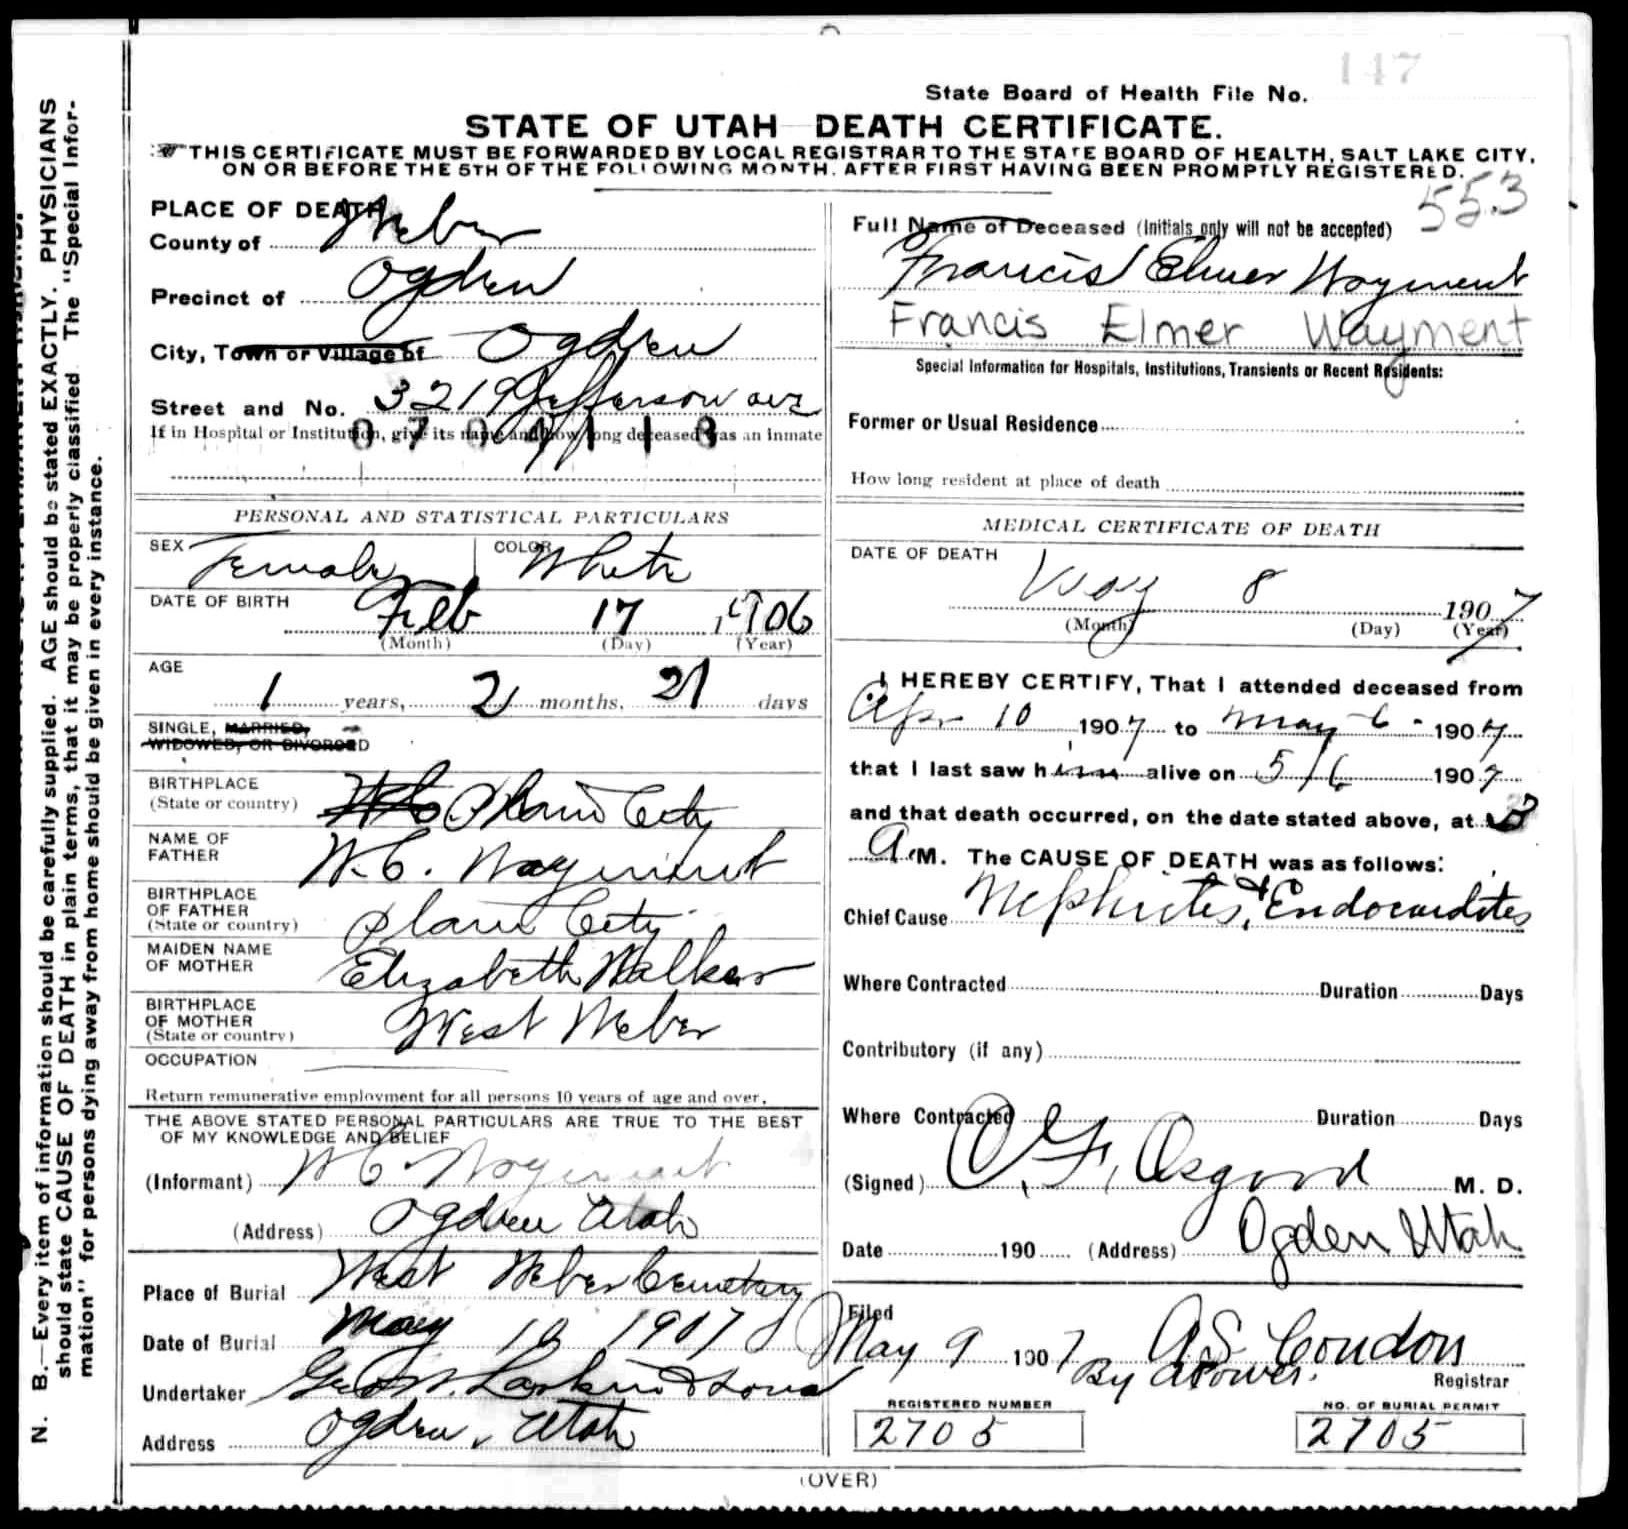 147
State Board of Health File No.
STATE OF UTAH DEATH CERTIFICATE.
THIS CERTIFICATE MUST BE FORWARDED BY LOCAL REGISTRAR TO THE STATE BOARD OF HEALTH, SALT LAKE CITY,
ON OR BEFORE THE 5TH OF THE FOLLOWING MONTH, AFTER FIRST HAVING BEEN PROMPTLY REGISTERED.
553
N. B.—Every item of information should be carefully supplied. AGE should be stated EXACTLY. PHYSICIANS
should state CAUSE OF DEATH in plain terms, that it may be properly classified. The "Special Infor-
mation" for persons dying away from home should be given in every instance.
PLACE OF DEATH
County of Weber
Precinct of Ogden
City, Town or Village of Ogden
Street and No. 3219 Jefferson ave
If in Hospital or Institution, give its name and how long deceased was an inmate
PERSONAL AND STATISTICAL PARTICULARS
SEX Female COLOR White
DATE OF BIRTH Feb 17 1906
(Month) (Day) (Year)
AGE
1 years, 2 months, 21 days
SINGLE, MARRIED,
WIDOWED, OR DIVORCED
BIRTHPLACE
(State or country) Plain City
NAME OF
FATHER W. C. Wayment
BIRTHPLACE
OF FATHER
(State or country) Plain City
MAIDEN NAME
OF MOTHER Elizabeth Walker
BIRTHPLACE
OF MOTHER
(State or country) West Weber
OCCUPATION
Return remunerative employment for all persons 10 years of age and over.
THE ABOVE STATED PERSONAL PARTICULARS ARE TRUE TO THE BEST
OF MY KNOWLEDGE AND BELIEF
(Informant) W C Wayment
(Address) Ogden Utah
Place of Burial West Weber Cemetery
Date of Burial May 10 1907
Undertaker Geo W. Larkin & Sons
Address Ogden, Utah
Full Name of Deceased (Initials only will not be accepted)
Francis Elmer Wayment
Francis Elmer Wayment
Special Information for Hospitals, Institutions, Transients or Recent Residents:
Former or Usual Residence
How long resident at place of death
MEDICAL CERTIFICATE OF DEATH
DATE OF DEATH
May 8 1907
(Month) (Day) (Year)
I HEREBY CERTIFY, That I attended deceased from
Apr 10 1907 to May 6 1907
that I last saw him alive on 5/6 1907
and that death occurred, on the date stated above, at 3
A M. The CAUSE OF DEATH was as follows:
Chief Cause Nephrites & Endocardites
Where Contracted Duration Days
Contributory (if any)
Where Contracted Duration Days
(Signed) O. F. Osgood M. D.
Date 190 (Address) Ogden Utah
Filed
May 9 1907 A S Condon
By Registrar
REGISTERED NUMBER NO. OF BURIAL PERMIT
2705 2705
(OVER)